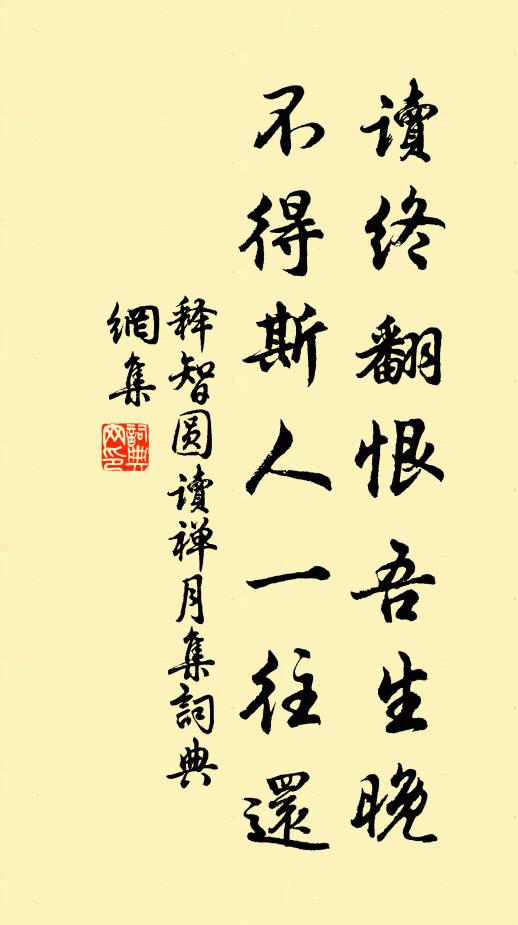 讀終翻恨吾生晚
不得斯人一往還
释智圆讀禅月集詞典
網集
詞典網印